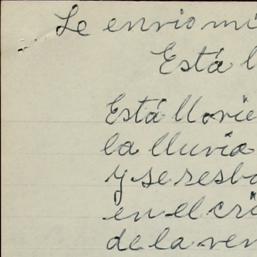 Le envío mi
Está l
Está llovie
la lluvia
y se resba
en el cri
de la ven